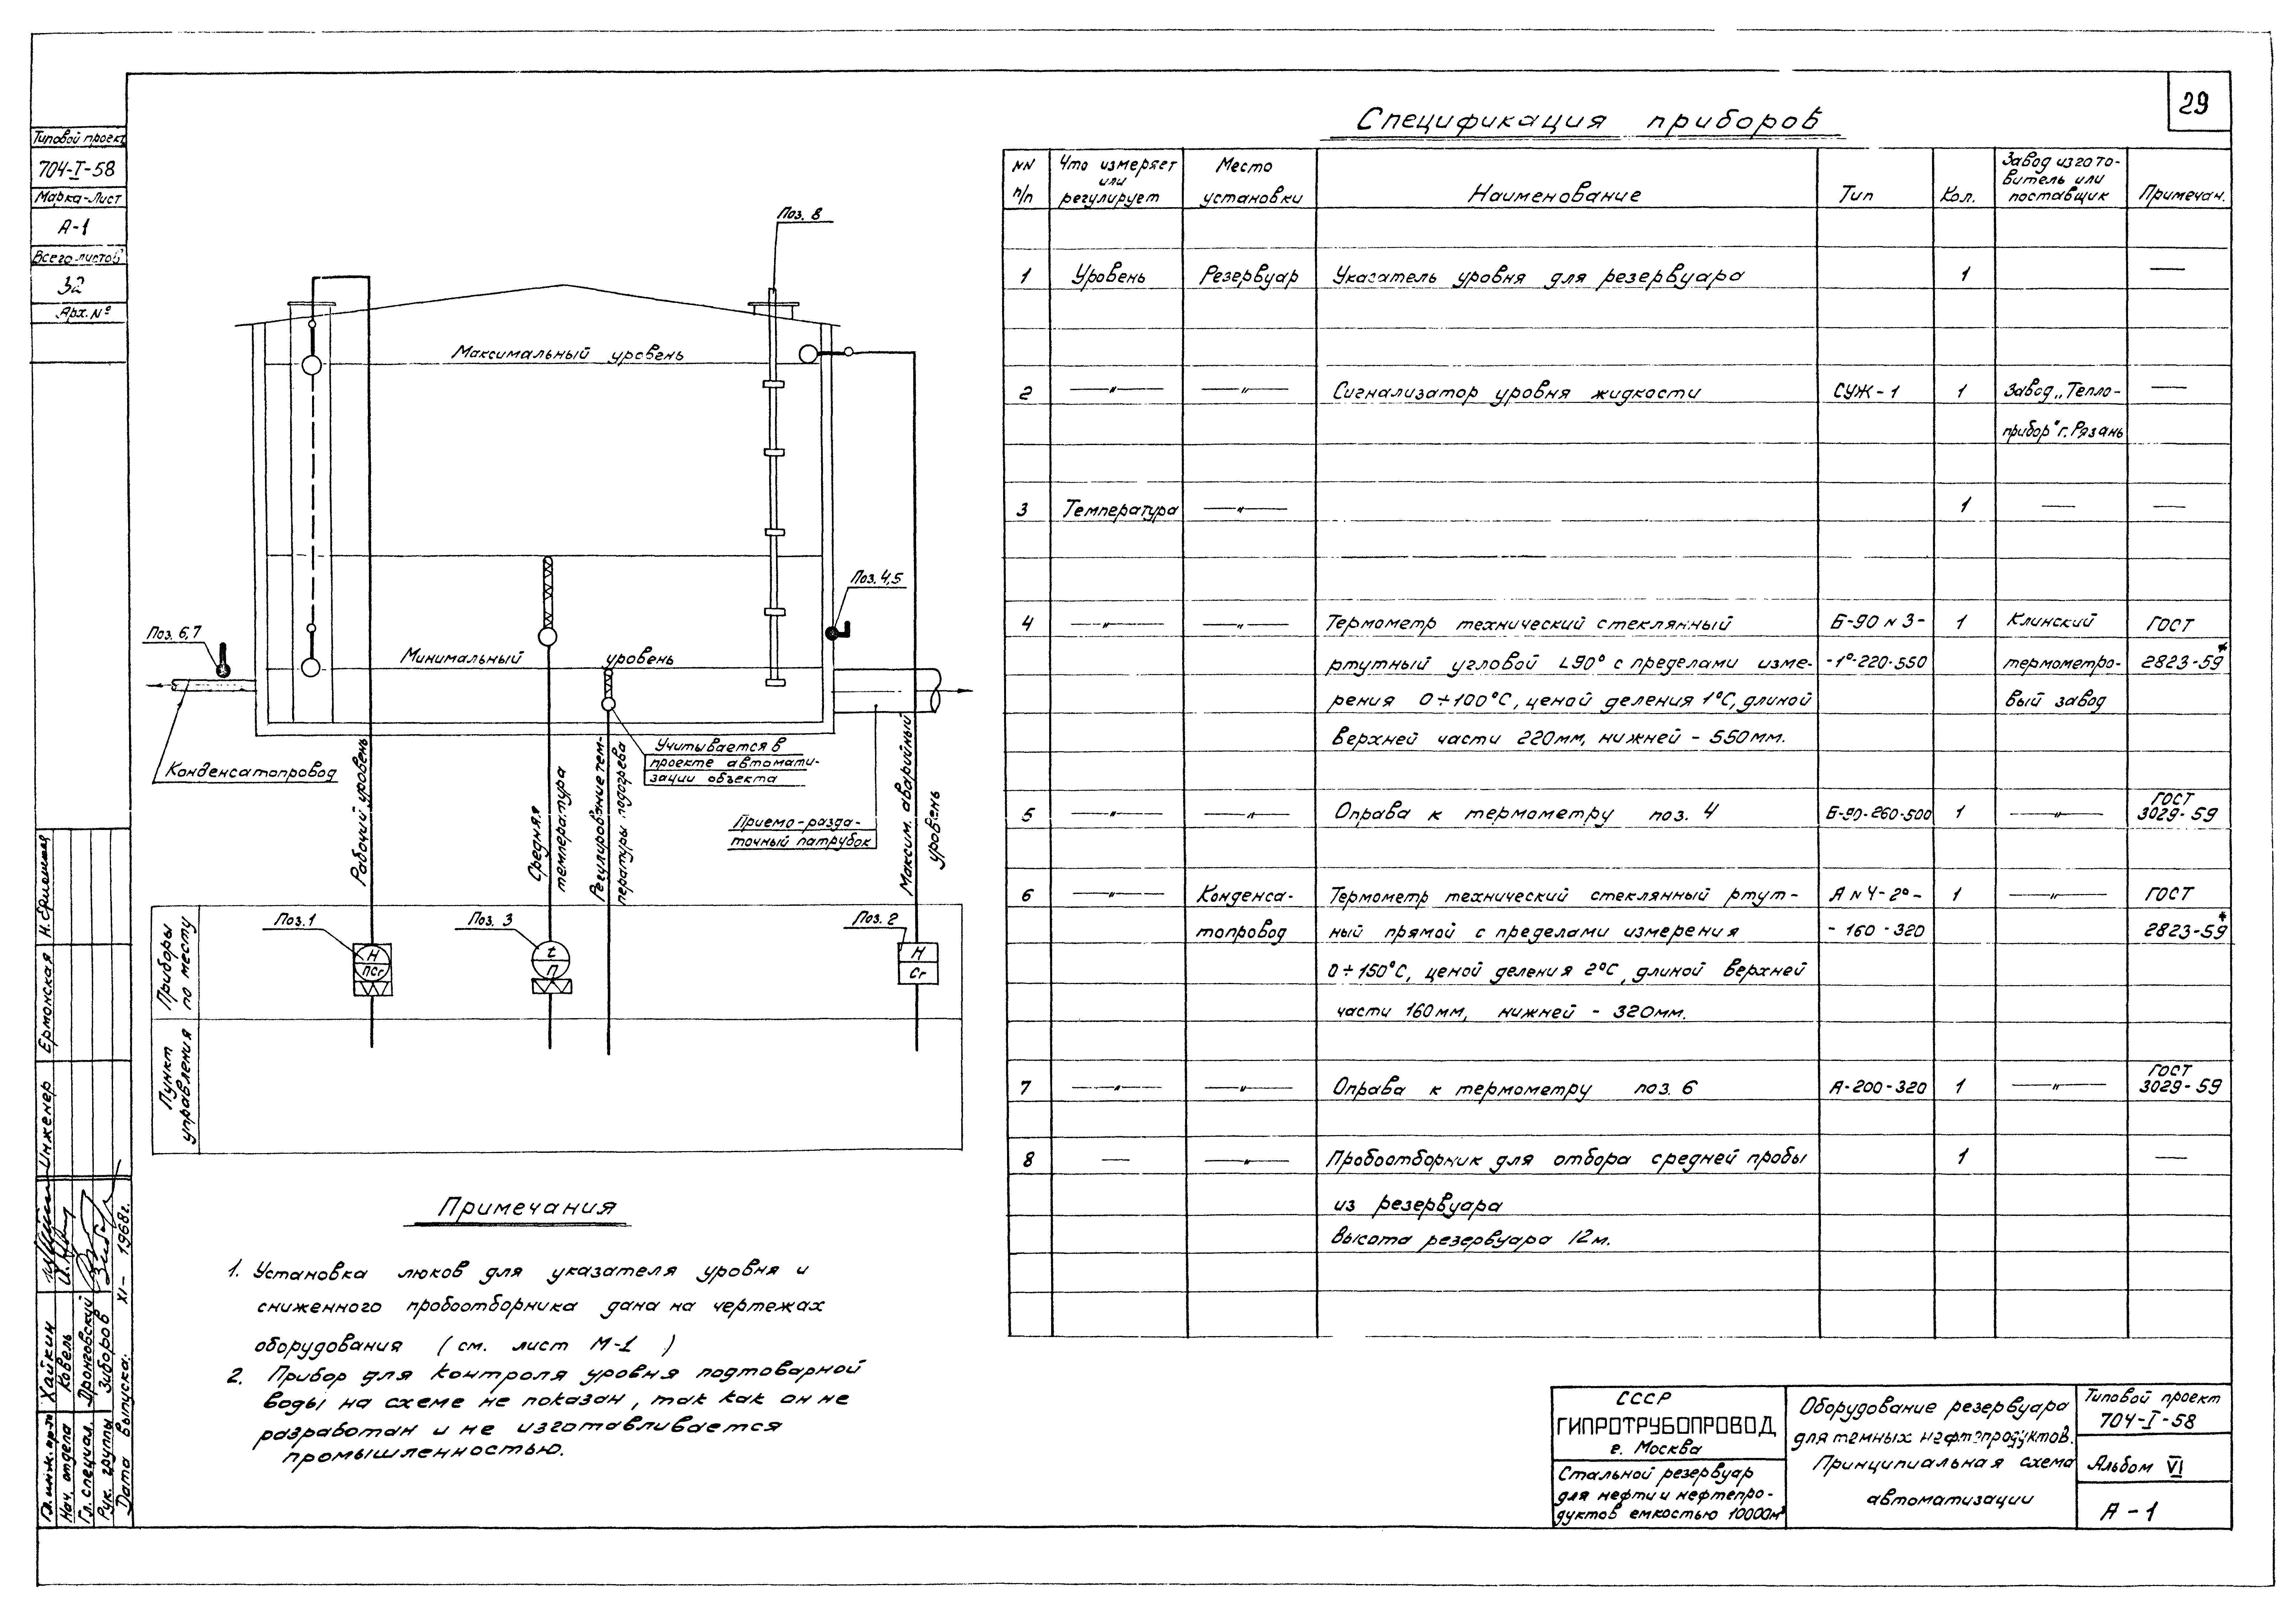 29
Типовой проект
704-I-58
Марка-Лист
А-1
Всего листов
32
Арх. №
Поз. 8
Максимальный уровень
Поз. 4,5
Поз. 6,7
Минимальный уровень
Конденсатопровод
Учитывается в
проекте автомати-
зации объекта
Приемо-разда-
точный патрубок
Рабочий уровень
Средняя
температура
Регулирование тем-
пературы подогрева
Максим. аварийный
уровень
Приборы
по месту
Поз. 1
Н
ПСг
Поз. 3
t
П
Поз. 2
Н
Сг
Пункт
управления
Примечания
1. Установка люков для указателя уровня и
сниженного пробоотборника дана на чертежах
оборудования (см. лист М-1 )
2. Прибор для контроля уровня подтоварной
воды на схеме не показан, так как он не
разработан и не изготавливается
промышленностью.
Спецификация приборов
NN п/п | Что измеряет или регулирует | Место установки | Наименование | Тип | Кол. | Завод изгото-витель или поставщик | Примечан.
1 Уровень Резервуар Указатель уровня для резервуара 1 —
2 —"— —"— Сигнализатор уровня жидкости СУЖ-1 1 Завод „Тепло- —
прибор" г. Рязань
3 Температура —"— 1 — —
4 —"— —"— Термометр технический стеклянный Б-90 N 3- 1 Клинский ГОСТ
ртутный угловой ∠90° с пределами изме- -1°-220-550 термометро- 2823-59*
рения 0÷100°С, ценой деления 1°С, длиной вый завод
верхней части 220мм, нижней - 550мм.
5 —"— —"— Оправа к термометру поз. 4 Б-90-260-500 1 —"— ГОСТ 3029-59
6 —"— Конденса- Термометр технический стеклянный ртут- А N 4-2°- 1 —"— ГОСТ
топровод ный прямой с пределами измерения -160-320 2823-59*
0÷150°С, ценой деления 2°С, длиной верхней
части 160мм, нижней - 320мм.
7 —"— —"— Оправа к термометру поз. 6 А-200-320 1 —"— ГОСТ 3029-59
8 — —"— Пробоотборник для отбора средней пробы 1 —
из резервуара
Высота резервуара 12м.
СССР
ГИПРОТРУБОПРОВОД
г. Москва
Стальной резервуар
для нефти и нефтепро-
дуктов емкостью 10000м³
Оборудование резервуара
для темных нефтепродуктов.
Принципиальная схема
автоматизации
Типовой проект
704-I-58
Альбом VI
А-1
Гл. инж. пр-та Хайкин Инженер Ермонская
Нач. отдела Ковель
Гл. специал. Дронговский
Рук. группы Зиборов
Дата выпуска: XI- 1968г.